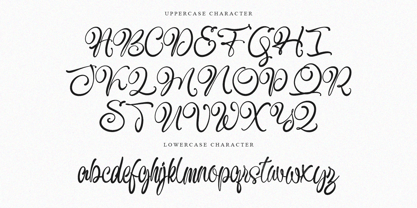 UPPERCASE CHARACTER
ABCDEFGHI
JKLMNOPQR
STUVWXYZ
LOWERCASE CHARACTER
abcdefghijklmnopqrstuvwxyz